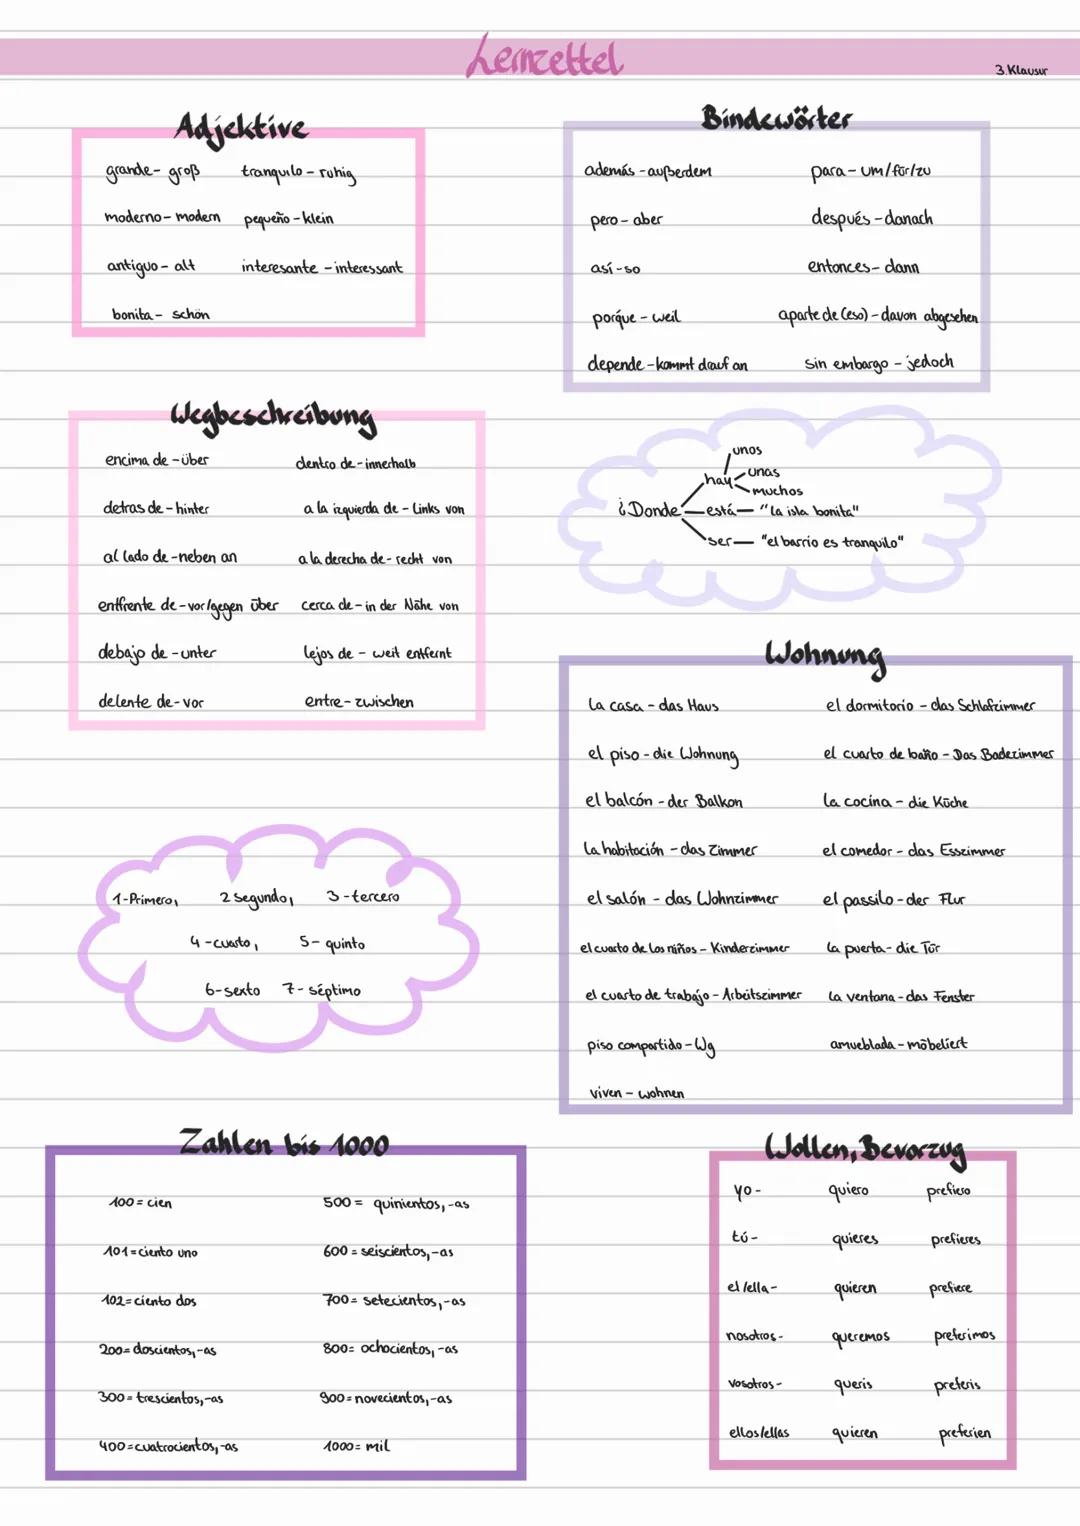 Lernzettel
3.Klausur
Adjektive
grande- groß
tranquilo - ruhig
moderno- modern
pequeño - klein
antiguo - alt
interesante - interessant
bonita - schön
Bindewörter
además - außerdem
para - um/für/zu
pero - aber
después - danach
así - so
entonces - dann
porque - weil
aparte de (eso) - davon abgesehen
depende - kommt drauf an
sin embargo - jedoch
Wegbeschreibung
encima de - über
dentro de - innerhalb
detras de - hinter
a la izquierda de - Links von
al lado de - neben an
a la derecha de - recht von
enffrente de - vor/gegen über
cerca de - in der Nähe von
debajo de - unter
lejos de - weit entfernt
delente de - vor
entre - zwischen
¿Donde
hay
unos
unas
muchos
está — "la isla bonita"
ser — "el barrio es tranquilo"
Wohnung
la casa - das Haus
el dormitorio - das Schlafzimmer
el piso - die Wohnung
el cuarto de baño - Das Badezimmer
el balcón - der Balkon
la cocina - die Küche
la habitación - das Zimmer
el comedor - das Esszimmer
el salón - das Wohnzimmer
el passilo - der Flur
el cuarto de los niños - Kinderzimmer
la puerta - die Tür
el cuarto de trabajo - Arbeitszimmer
la ventana - das Fenster
piso compartido - Wg
amueblada - möbeliert
viven - wohnen
1-Primero, 2 segundo, 3 -tercero
4 -cuarto, 5- quinto
6-sexto 7- séptimo
Zahlen bis 1000
100 = cien
500 = quinientos, -as
101 = ciento uno
600 = seiscientos, -as
102 = ciento dos
700 = setecientos, -as
200 = doscientos, -as
800 = ochocientos, -as
300 = trescientos, -as
900 = novecientos, -as
400 = cuatrocientos, -as
1000 = mil
Wollen, Bevorzug
yo - quiero prefiero
tú - quieres prefieres
el/ella - quieren prefiere
nosotros - queremos preferimos
vosotros - queris preferis
ellos/ellas quieren preferien